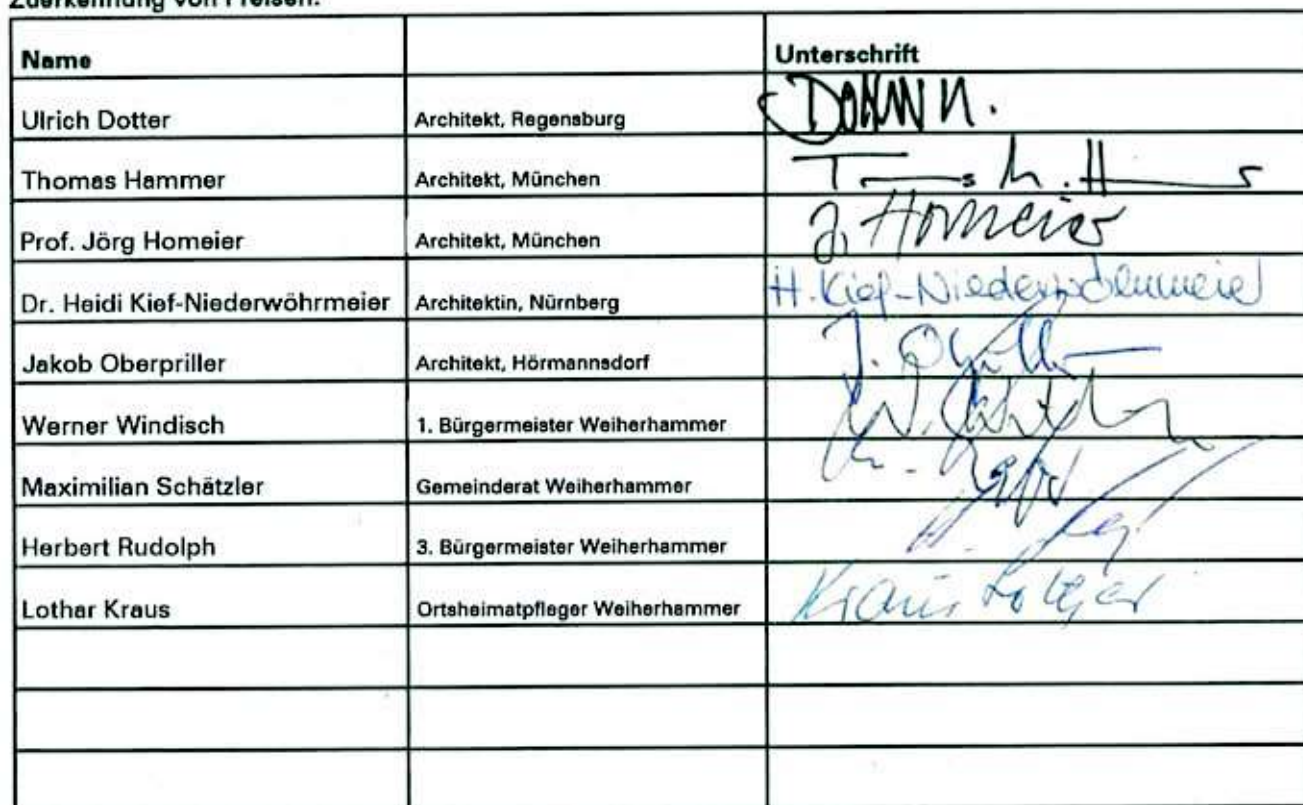 Zuerkennung von Preisen:
Name Unterschrift
Ulrich Dotter Architekt, Regensburg
Thomas Hammer Architekt, München
Prof. Jörg Homeier Architekt, München J. Homeier
Dr. Heidi Kief-Niederwöhrmeier Architektin, Nürnberg H. Kief-Niederwöhrmeier
Jakob Oberpriller Architekt, Hörmannsdorf
Werner Windisch 1. Bürgermeister Weiherhammer
Maximilian Schätzler Gemeinderat Weiherhammer
Herbert Rudolph 3. Bürgermeister Weiherhammer
Lothar Kraus Ortsheimatpfleger Weiherhammer Kraus Lothar